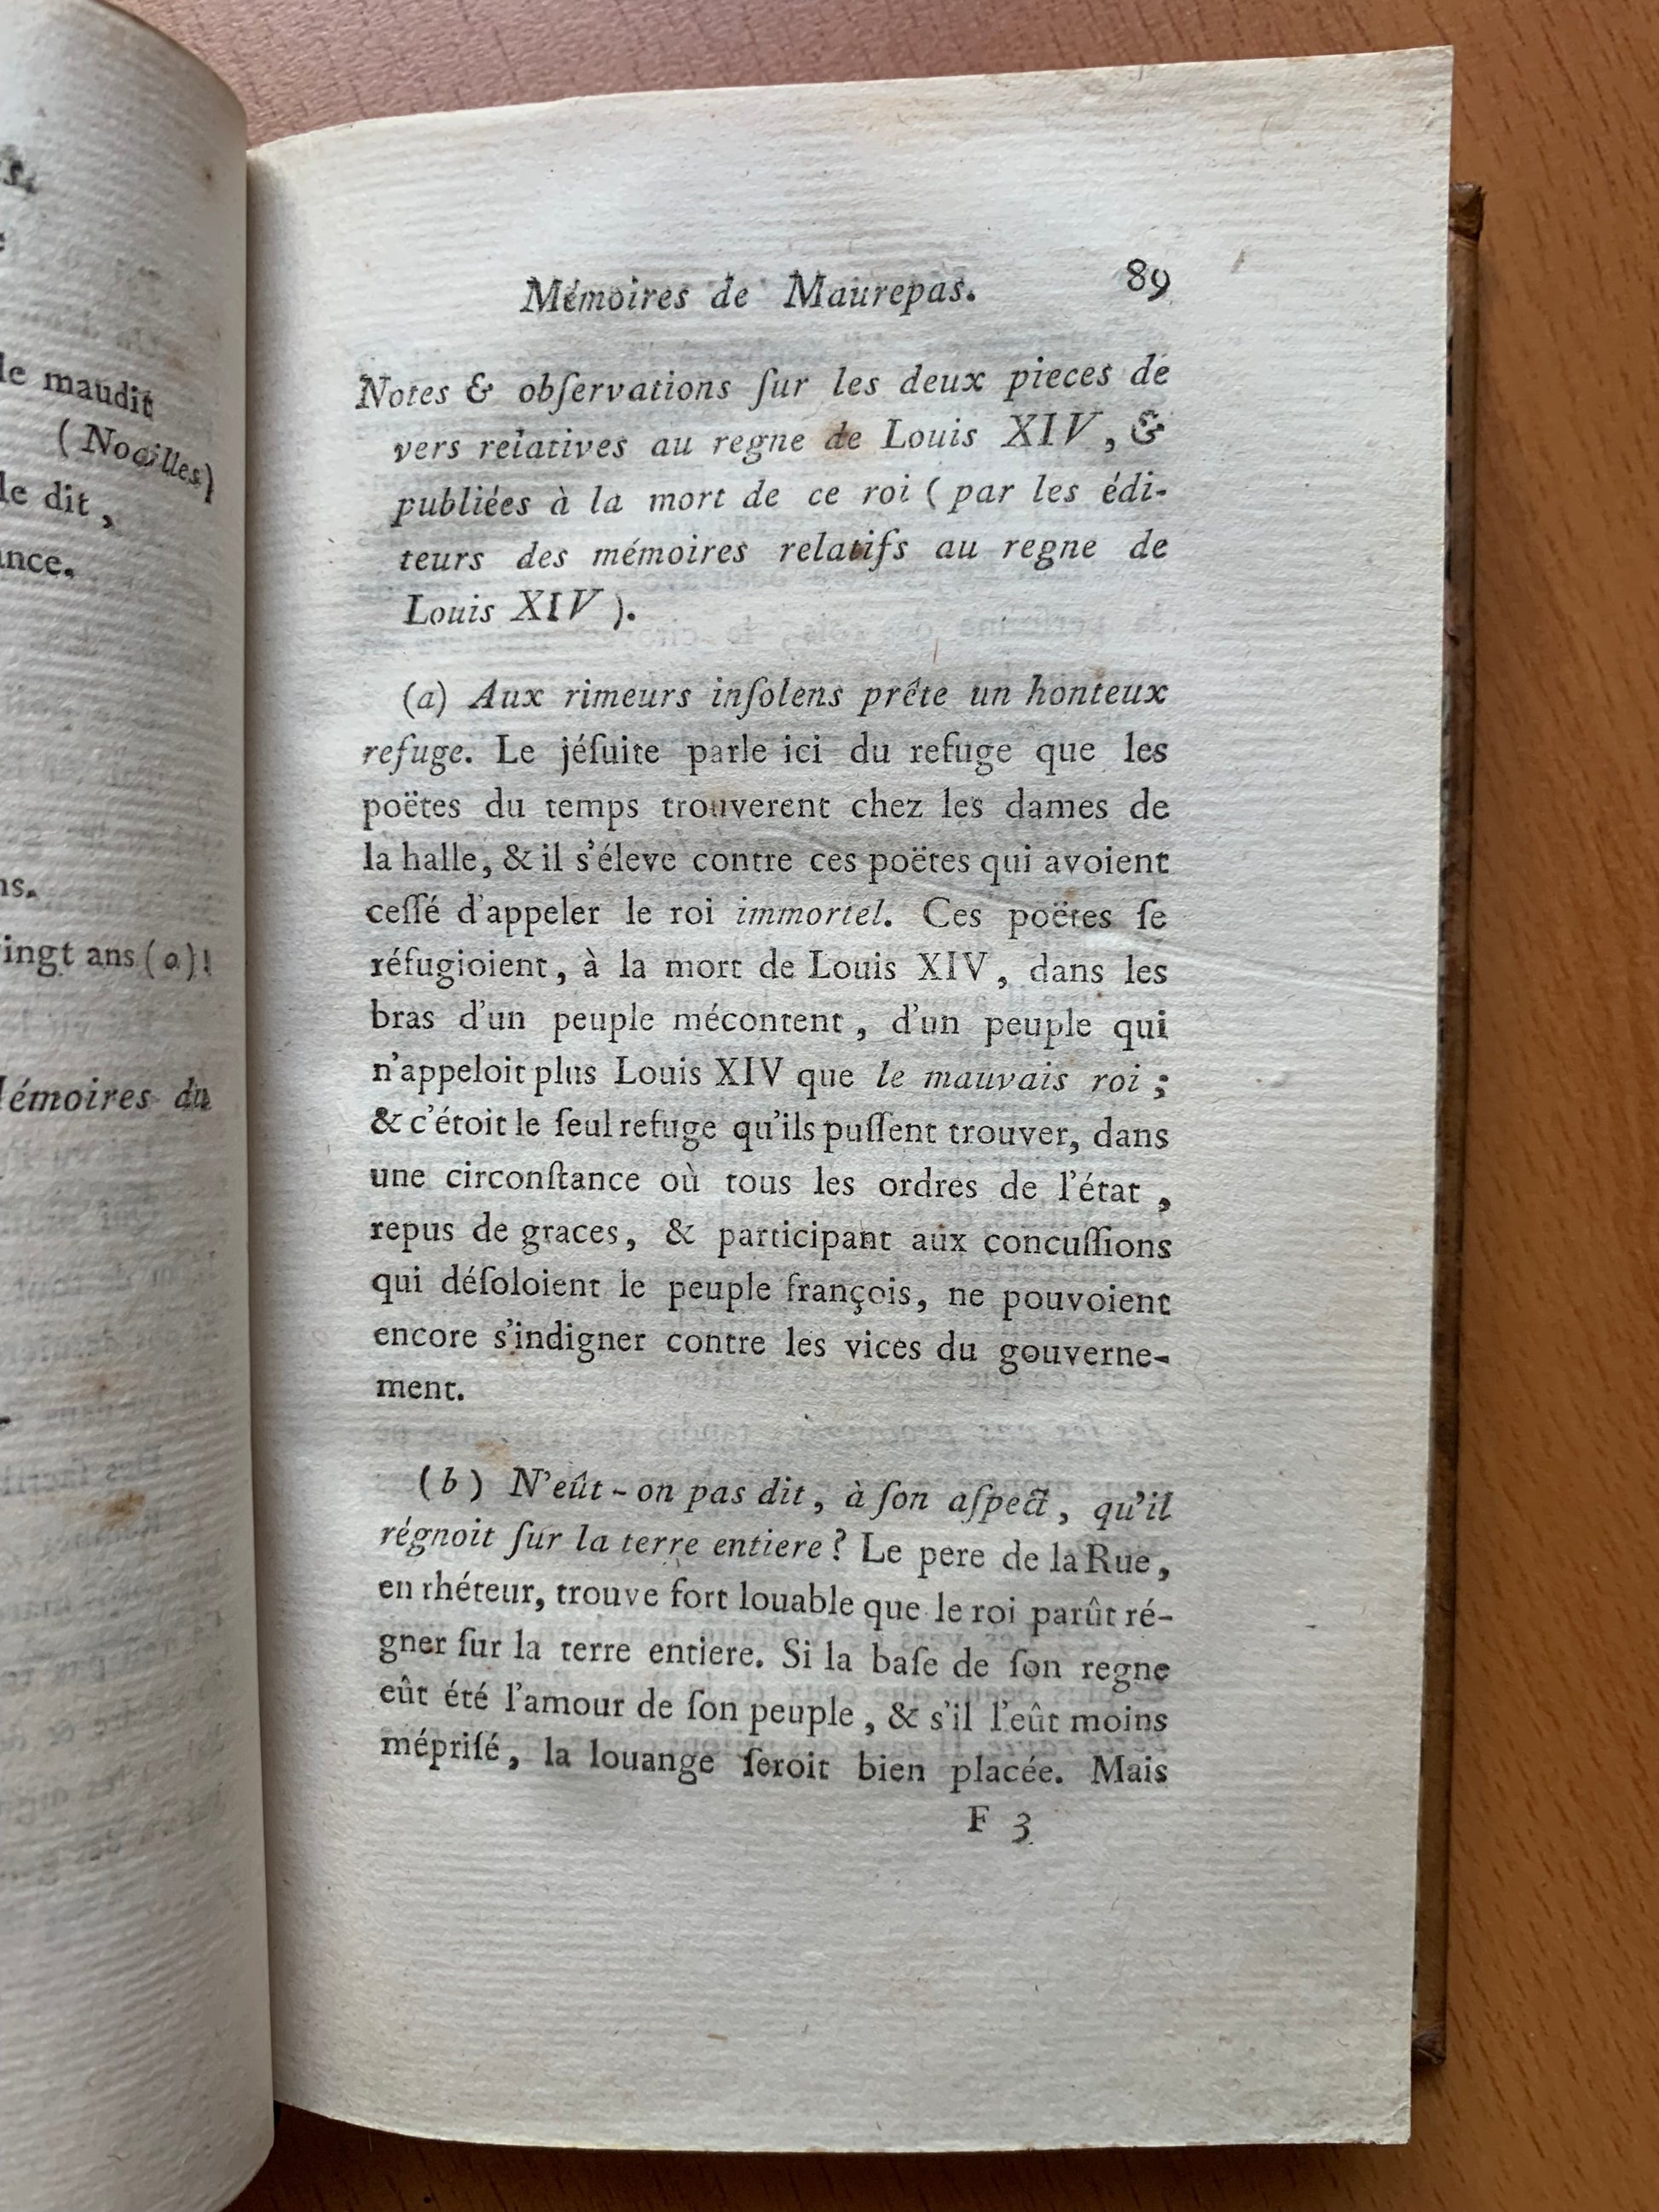 le maudit
(Noailles)
le dit,
ance.
ns.
ingt ans (a)!
émoires du
Mémoires de Maurepas. 89
Notes & obſervations ſur les deux pieces de
vers relatives au regne de Louis XIV, &
publiées à la mort de ce roi (par les édi-
teurs des mémoires relatifs au regne de
Louis XIV).
(a) Aux rimeurs inſolens prête un honteux
refuge. Le jéſuite parle ici du refuge que les
poëtes du temps trouverent chez les dames de
la halle, & il s'éleve contre ces poëtes qui avoient
ceſſé d'appeler le roi immortel. Ces poëtes ſe
réfugioient, à la mort de Louis XIV, dans les
bras d'un peuple mécontent, d'un peuple qui
n'appeloit plus Louis XIV que le mauvais roi;
& c'étoit le ſeul refuge qu'ils puſſent trouver, dans
une circonſtance où tous les ordres de l'état,
repus de graces, & participant aux concuſſions
qui déſoloient le peuple françois, ne pouvoient
encore s'indigner contre les vices du gouverne-
ment.
(b) N'eût-on pas dit, à ſon aſpect, qu'il
régnoit ſur la terre entiere? Le pere de la Rue,
en rhéteur, trouve fort louable que le roi parût ré-
gner ſur la terre entiere. Si la baſe de ſon regne
eût été l'amour de ſon peuple, & s'il l'eût moins
mépriſé, la louange ſeroit bien placée. Mais
F 3